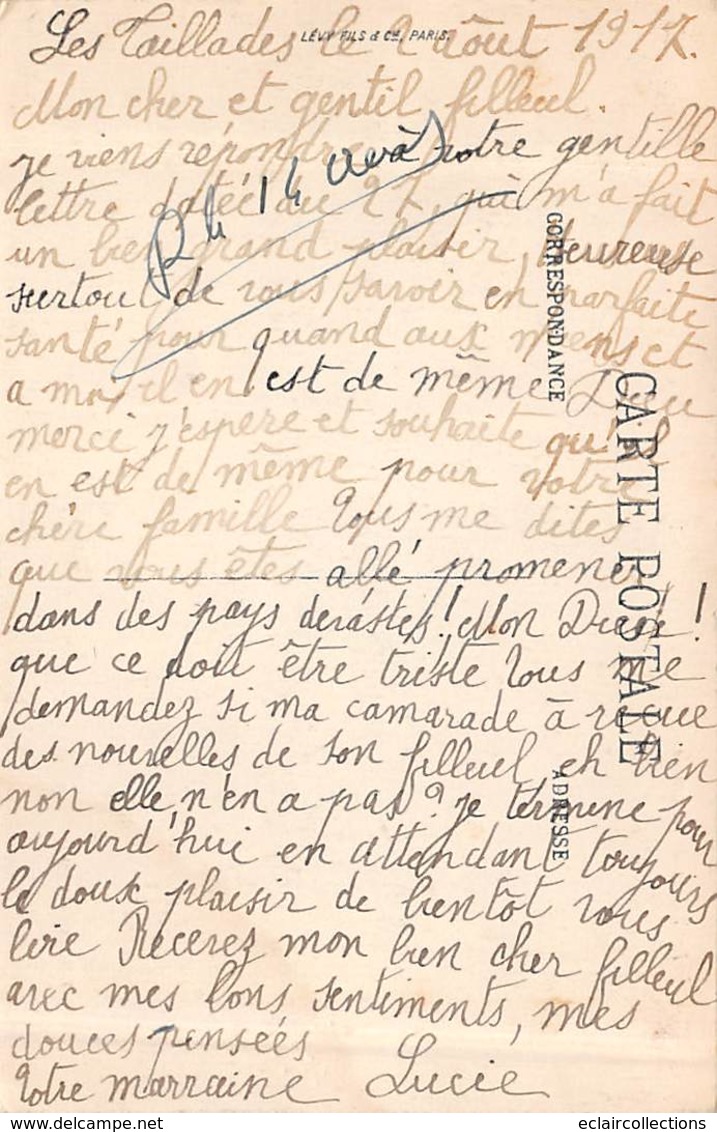 Les Taillades le 2 Août 1917.
LÉVY FILS & Cie, PARIS.
Mon cher et gentil filleul.
je viens répondre à votre gentille
lettre datée du 27, qui m'a fait
un bien grand plaisir, heureuse
surtout de vous savoir en parfaite
santé pour quand aux miens et
a moi il en est de même Dieu
merci j'espère et souhaite qu'il
en est de même pour votre
chère famille Vous me dites
que vous êtes allé promener
dans des pays dévastés! Mon Dieu!
que ce doit être triste Vous me
demandez si ma camarade à reçue
des nouvelles de son filleul eh bien
non elle n'en a pas? je termine pour
aujourd'hui en attendant toujours
le doux plaisir de bientôt vous
lire Recevez mon bien cher filleul
avec mes bons sentiments, mes
douces pensées
Votre marraine Lucie
R le 14
CORRESPONDANCE
CARTE POSTALE
ADRESSE
eclaircollections